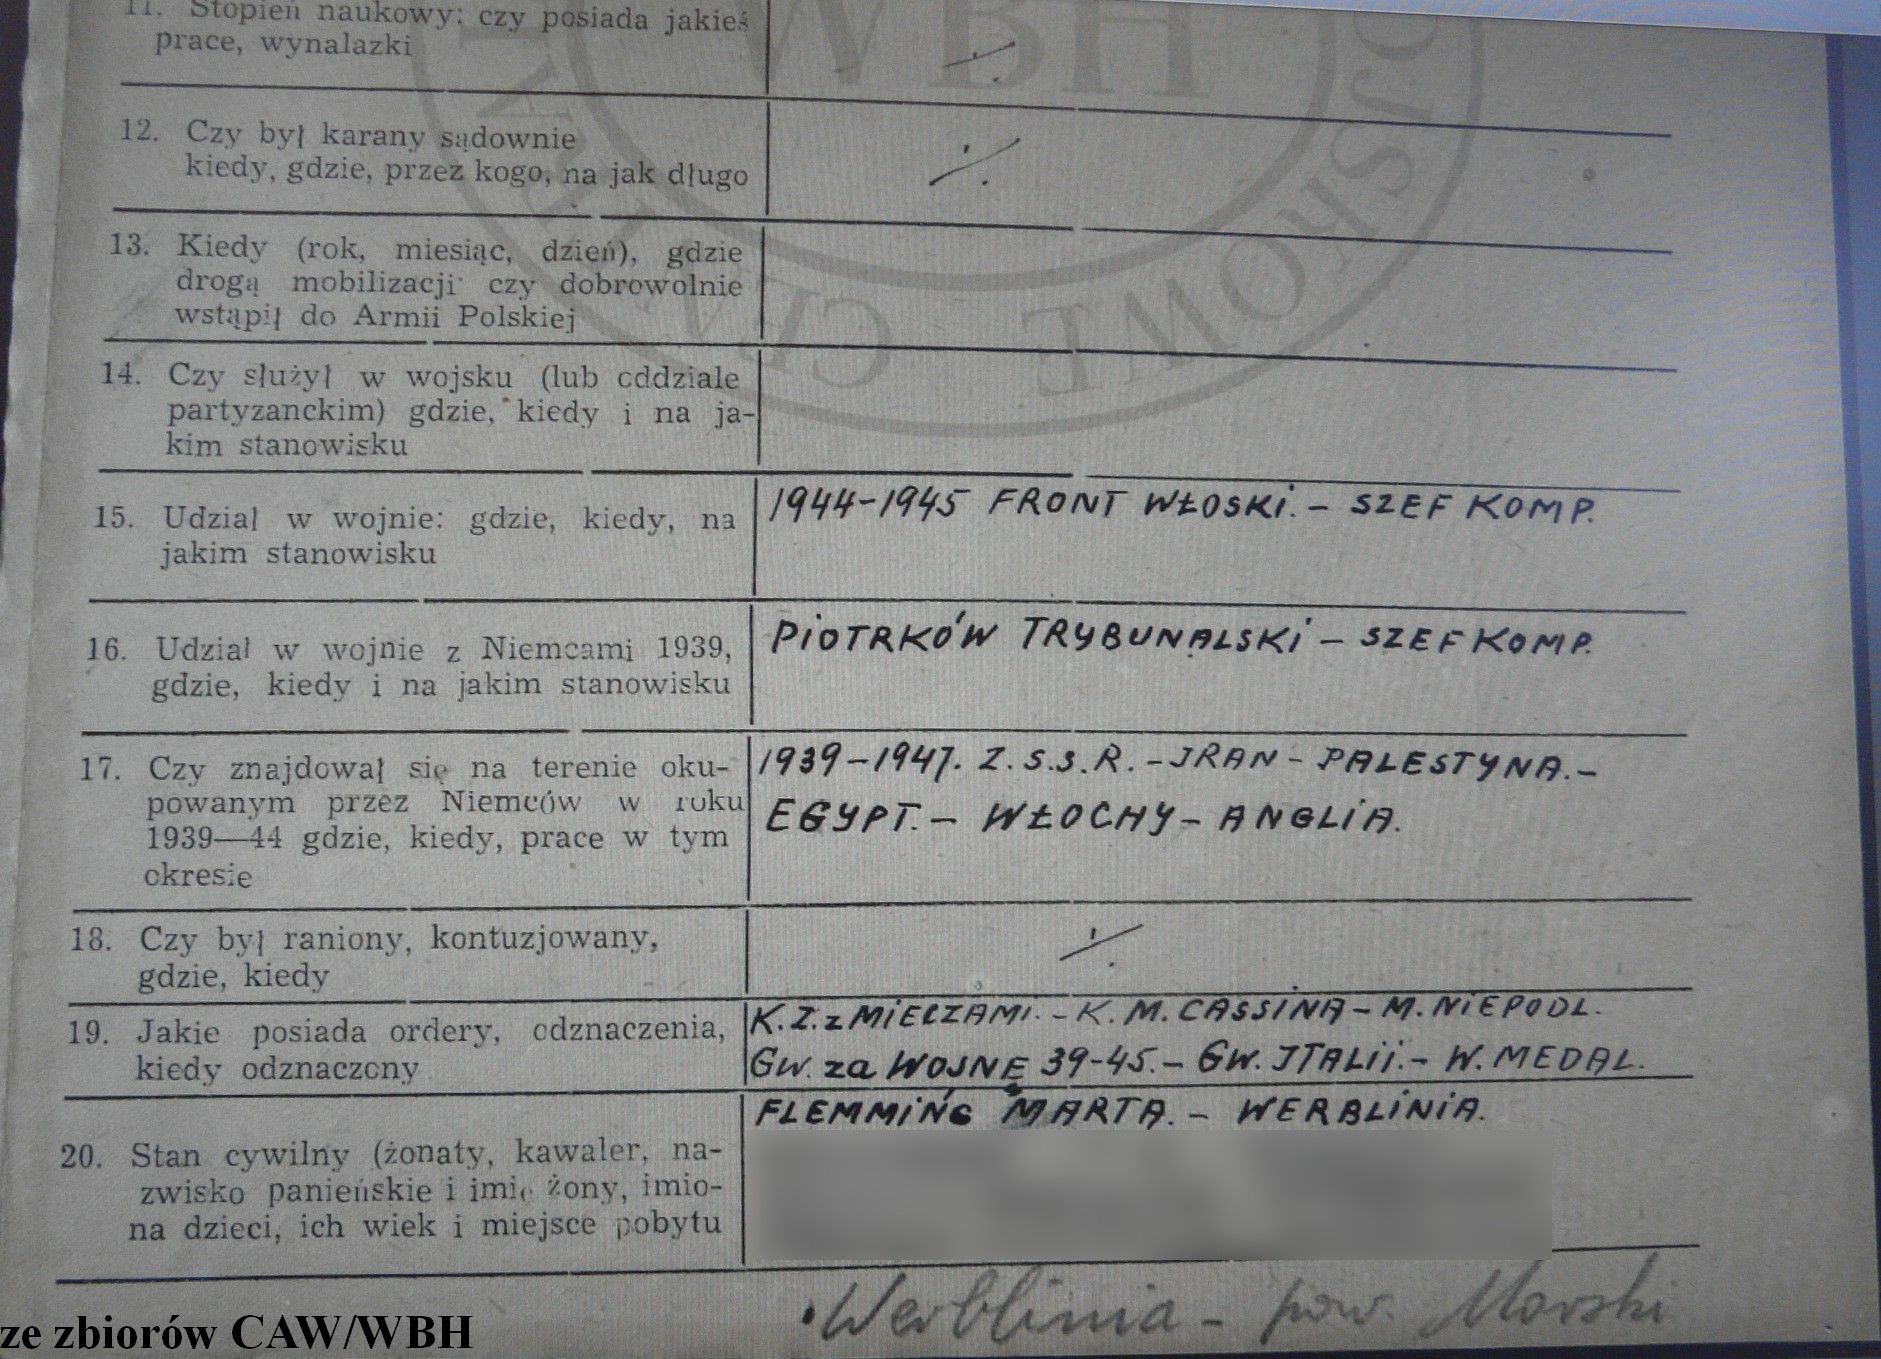 11. Stopień naukowy: czy posiada jakieś
prace, wynalazki
./.
12. Czy był karany sądownie
kiedy, gdzie, przez kogo, na jak długo
./.
13. Kiedy (rok, miesiąc, dzień), gdzie
drogą mobilizacji czy dobrowolnie
wstąpił do Armii Polskiej
14. Czy służył w wojsku (lub oddziale
partyzanckim) gdzie, kiedy i na ja-
kim stanowisku
15. Udział w wojnie: gdzie, kiedy, na
jakim stanowisku
1944-1945 FRONT WŁOSKi. - SZEF KOMP.
16. Udział w wojnie z Niemcami 1939,
gdzie, kiedy i na jakim stanowisku
PiOTRKÓW TRYBUNALSKi - SZEF KOMP.
17. Czy znajdował się na terenie oku-
powanym przez Niemców w roku
1939—44 gdzie, kiedy, prace w tym
okresie
1939-1947. Z.S.S.R. - JRAN - PALESTYNA. -
EGYPT. - WŁOCHY - ANGLiA.
18. Czy był raniony, kontuzjowany,
gdzie, kiedy
./.
19. Jakie posiada ordery, odznaczenia,
kiedy odznaczony
K.Z. z MiECZAMi. - K.M. CASSiNA - M. NiEPODL.
GW. za WOJNĘ 39-45. - GW. JTALii. - W. MEDAL.
20. Stan cywilny (żonaty, kawaler, na-
zwisko panieńskie i imię żony, imio-
na dzieci, ich wiek i miejsce pobytu
FLEMMiNG MARTA. - WERBLiNiA.
Werblinia - pow. Morski
ze zbiorów CAW/WBH
WBH